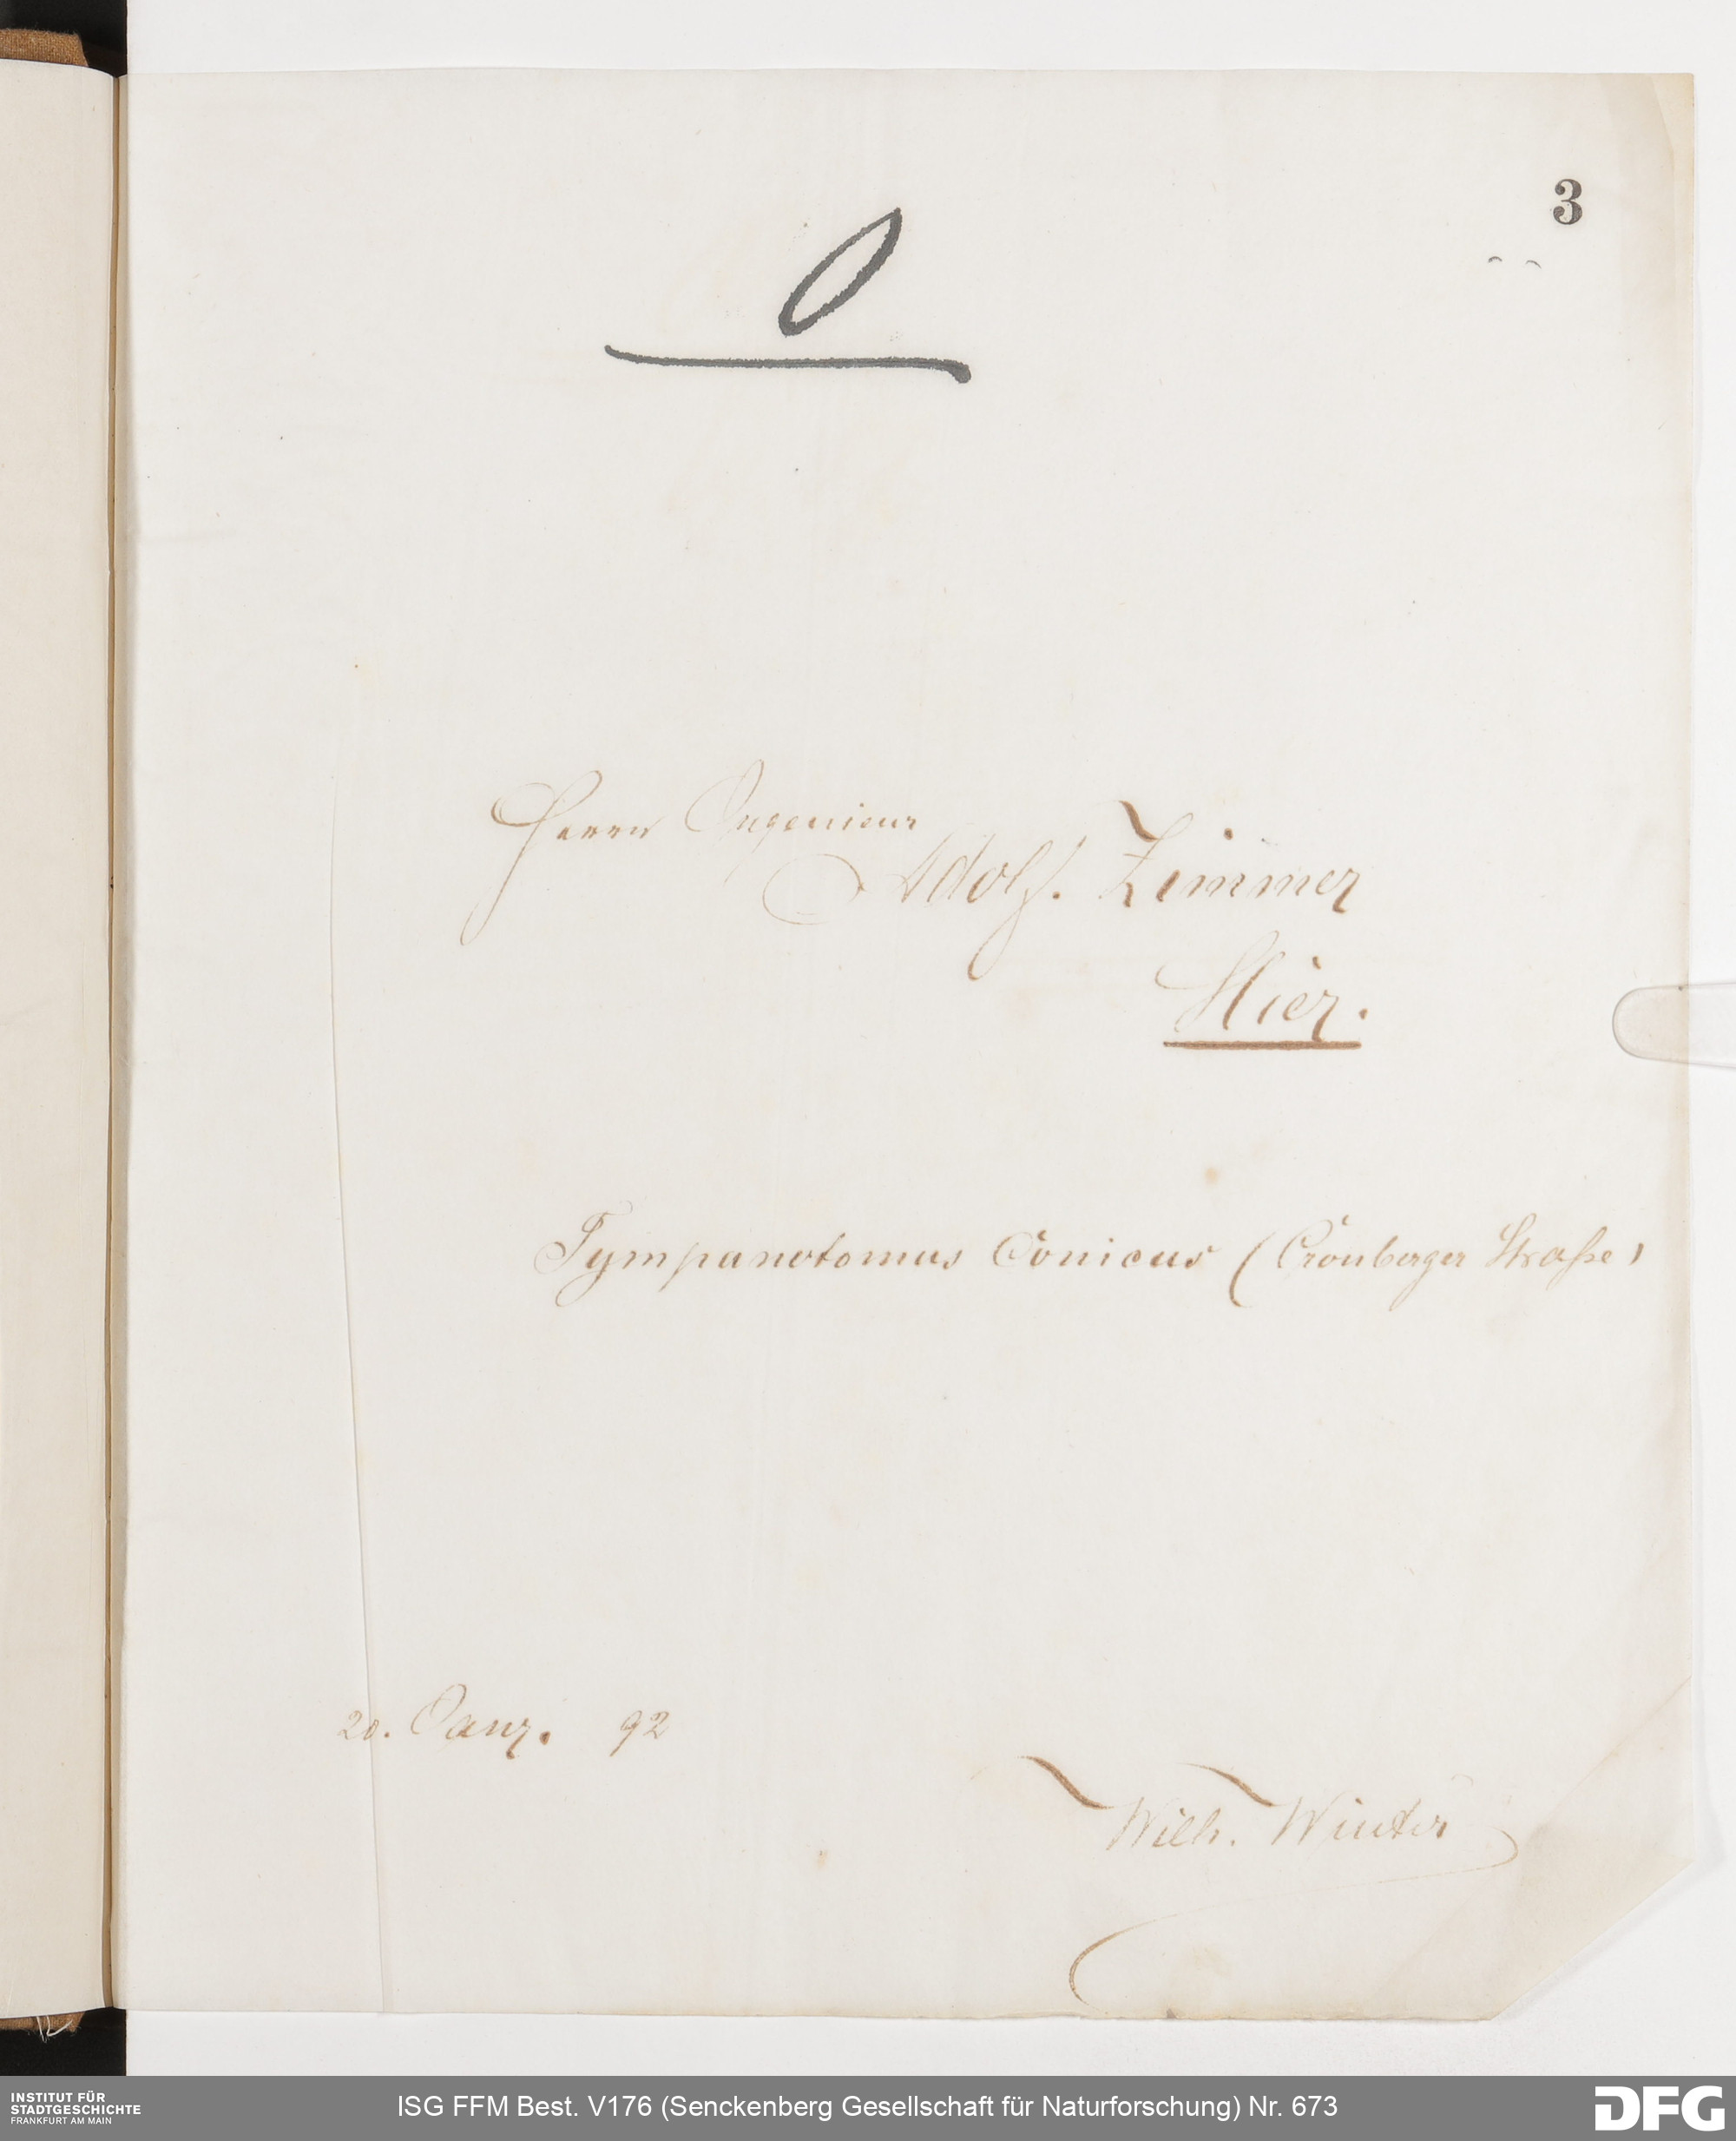 3
0
Herrn Ingenieur
Adolf. Zimmer
Hier.
Tympanotomus Conicus (Cronberger Straße)
20. Janr. 92
Wilh. Winter
INSTITUT FÜR
STADTGESCHICHTE
FRANKFURT AM MAIN
ISG FFM Best. V176 (Senckenberg Gesellschaft für Naturforschung) Nr. 673
DFG